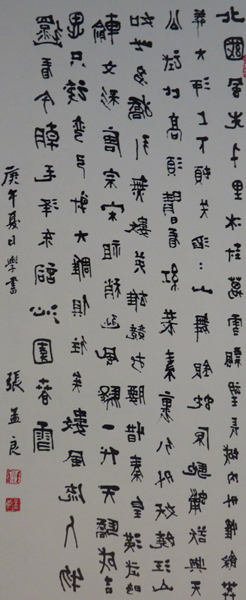 北國風光千里冰封萬里雪飄望長城內外惟餘莽
莽大河上下頓失滔滔山舞銀蛇原馳蠟象欲與天
公試比高須晴日看紅裝素裹分外妖嬈江山
如此多嬌引無數英雄競折腰惜秦皇漢武略
輸文采唐宗宋祖稍遜風騷一代天驕成吉
思只識彎弓射大雕俱往矣數風流人物
還看今朝毛澤東詞沁園春雪
庚午夏日學書
張孟良